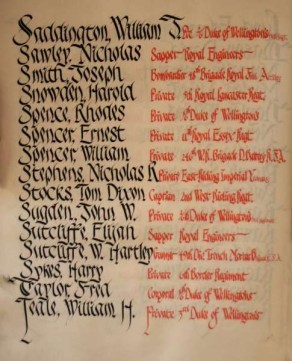 Saddington, William T. Pte. 2/5 Duke of Wellington's
Sawley, Nicholas Sapper Royal Engineers
Smith, Joseph Bombardier 18th Brigade Royal Fld. Artillery
Snowden, Harold Private 5th Royal Lancaster Regt.
Spence, Rhodes Private Duke of Wellington's
Spencer, Ernest Private 11th Royal Essex Regt.
Spencer, William Private Brigade
Stephens, Nicholas K Private East Riding Imperial Yeomanry
Stocks, Tom Dixon Captain 2nd West Riding Regt.
Sugden, John W. Private Duke of Wellington's
Sutcliffe, Elijah Sapper Royal Engineers
Sutcliffe, W. Hartley Gunner Trench Mortar
Sykes, Harry Private Border Regiment
Taylor, Fred Corporal Duke of Wellingtons
Teale, William H. Private 3rd Duke of Wellingtons